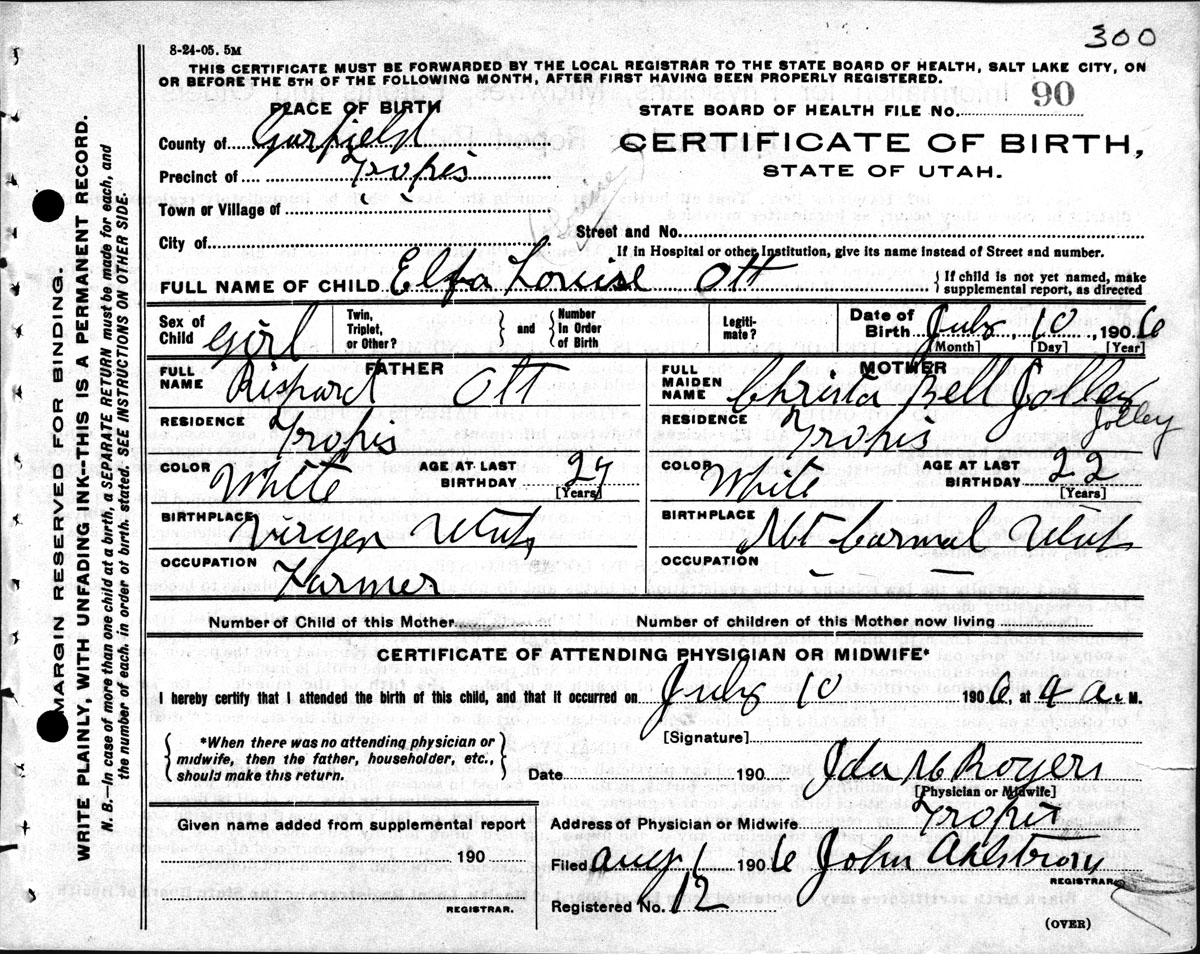 300
8-24-05. 5M
THIS CERTIFICATE MUST BE FORWARDED BY THE LOCAL REGISTRAR TO THE STATE BOARD OF HEALTH, SALT LAKE CITY, ON
OR BEFORE THE 5TH OF THE FOLLOWING MONTH, AFTER FIRST HAVING BEEN PROPERLY REGISTERED.
PLACE OF BIRTH
STATE BOARD OF HEALTH FILE No. 90
County of Garfield
CERTIFICATE OF BIRTH,
Precinct of Tropic
STATE OF UTAH.
Town or Village of
Street and No.
City of
If in Hospital or other Institution, give its name instead of Street and number.
FULL NAME OF CHILD Elfa Louise Ott
{ If child is not yet named, make supplemental report, as directed
Sex of Child Girl
Twin, Triplet, or Other? } and { Number In Order of Birth
Legiti-mate?
Date of Birth July 10, 1906
[Month] [Day] [Year]
FATHER
FULL NAME Rishard Ott
RESIDENCE Tropis
COLOR White AGE AT LAST BIRTHDAY 27
[Years]
BIRTHPLACE Virgen Utah
OCCUPATION Farmer
MOTHER
FULL MAIDEN NAME Christa Bell Jolley
Jolley
RESIDENCE Tropis
COLOR White AGE AT LAST BIRTHDAY 22
[Years]
BIRTHPLACE Mt Carmal Utah
OCCUPATION
Number of Child of this Mother
Number of children of this Mother now living
CERTIFICATE OF ATTENDING PHYSICIAN OR MIDWIFE*
I hereby certify that I attended the birth of this child, and that it occurred on July 10 1906, at 4 a. M.
{ *When there was no attending physician or midwife, then the father, householder, etc., should make this return. }
[Signature]
Date 190 Ida M Royers
[Physician or Midwife]
Given name added from supplemental report
190
REGISTRAR.
Address of Physician or Midwife Tropis
Filed Aug 1 1906 John Ahlstrom
REGISTRAR
Registered No. 12
(OVER)
MARGIN RESERVED FOR BINDING.
WRITE PLAINLY, WITH UNFADING INK--THIS IS A PERMANENT RECORD.
N. B.—In case of more than one child at a birth, a SEPARATE RETURN must be made for each, and
the number of each, in order of birth, stated. SEE INSTRUCTIONS ON OTHER SIDE.